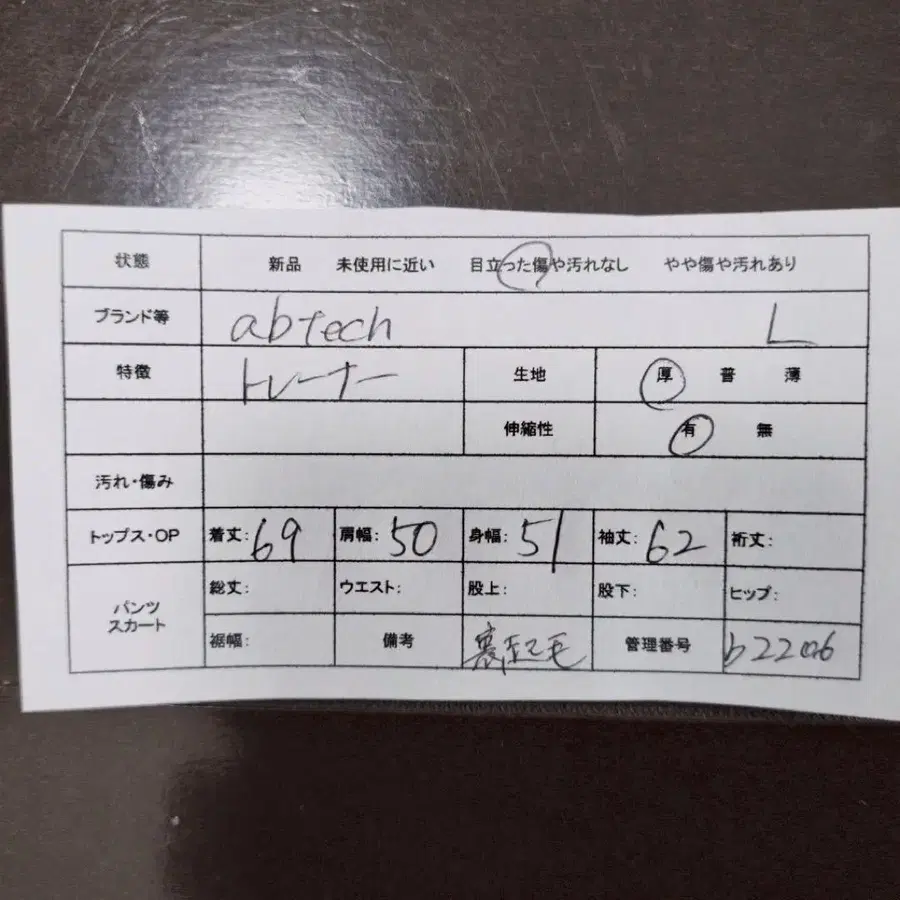 状態 新品 未使用に近い 目立った傷や汚れなし やや傷や汚れあり
ブランド等 abtech L
特徴 トレーナー 生地 厚 普 薄
伸縮性 有 無
汚れ・傷み
トップス・OP 着丈: 69 肩幅: 50 身幅: 51 袖丈: 62 裄丈:
パンツ 総丈: ウエスト: 股上: 股下: ヒップ:
スカート
裾幅: 備考 裏起毛 管理番号 b2206